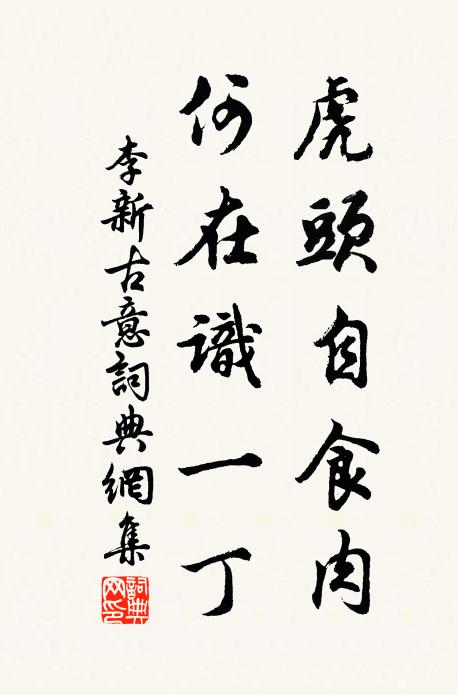 虎頭自食肉
何在識一丁
李新古意詞典網集
詞典
网印